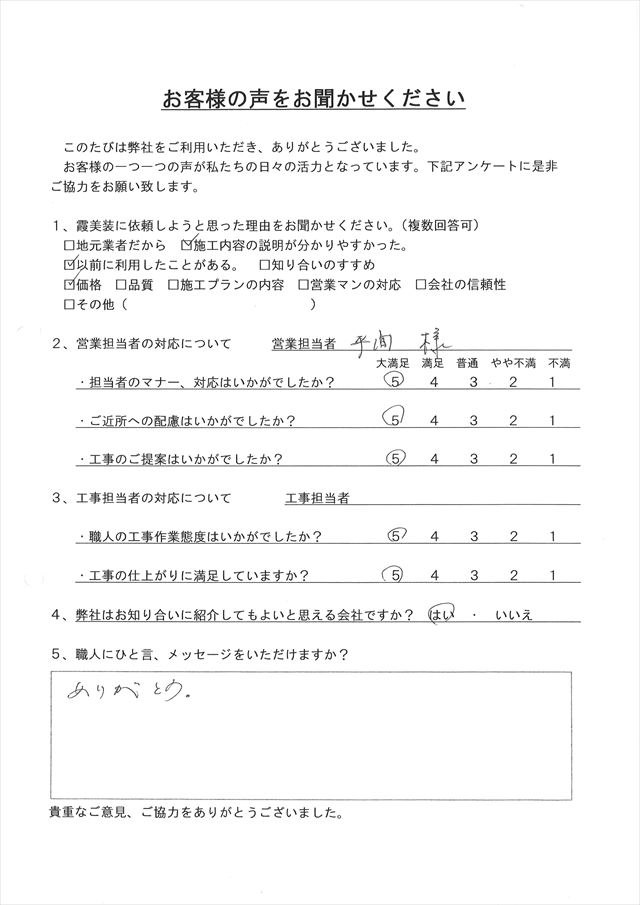 お客様の声をお聞かせください
このたびは弊社をご利用いただき、ありがとうございました。
お客様の一つ一つの声が私たちの日々の活力となっています。下記アンケートに是非
ご協力をお願い致します。
1、霞美装に依頼しようと思った理由をお聞かせください。（複数回答可）
□地元業者だから ☑施工内容の説明が分かりやすかった。
☑以前に利用したことがある。 □知り合いのすすめ
☑価格 □品質 □施工プランの内容 □営業マンの対応 □会社の信頼性
□その他（ ）
2、営業担当者の対応について 営業担当者 平間 様
大満足 満足 普通 やや不満 不満
・担当者のマナー、対応はいかがでしたか？ 5 4 3 2 1
・ご近所への配慮はいかがでしたか？ 5 4 3 2 1
・工事のご提案はいかがでしたか？ 5 4 3 2 1
3、工事担当者の対応について 工事担当者
・職人の工事作業態度はいかがでしたか？ 5 4 3 2 1
・工事の仕上がりに満足していますか？ 5 4 3 2 1
4、弊社はお知り合いに紹介してもよいと思える会社ですか？ はい ・ いいえ
5、職人にひと言、メッセージをいただけますか？
ありがとう。
貴重なご意見、ご協力をありがとうございました。